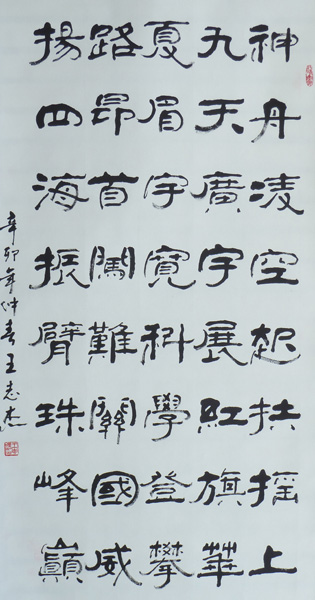 神舟凌空起扶摇上
九天廣宇展紅旗華
夏眉宇寬科學登攀
路昂首闖難關國威
揚四海振臂珠峰巔
辛卯年仲春王志杰